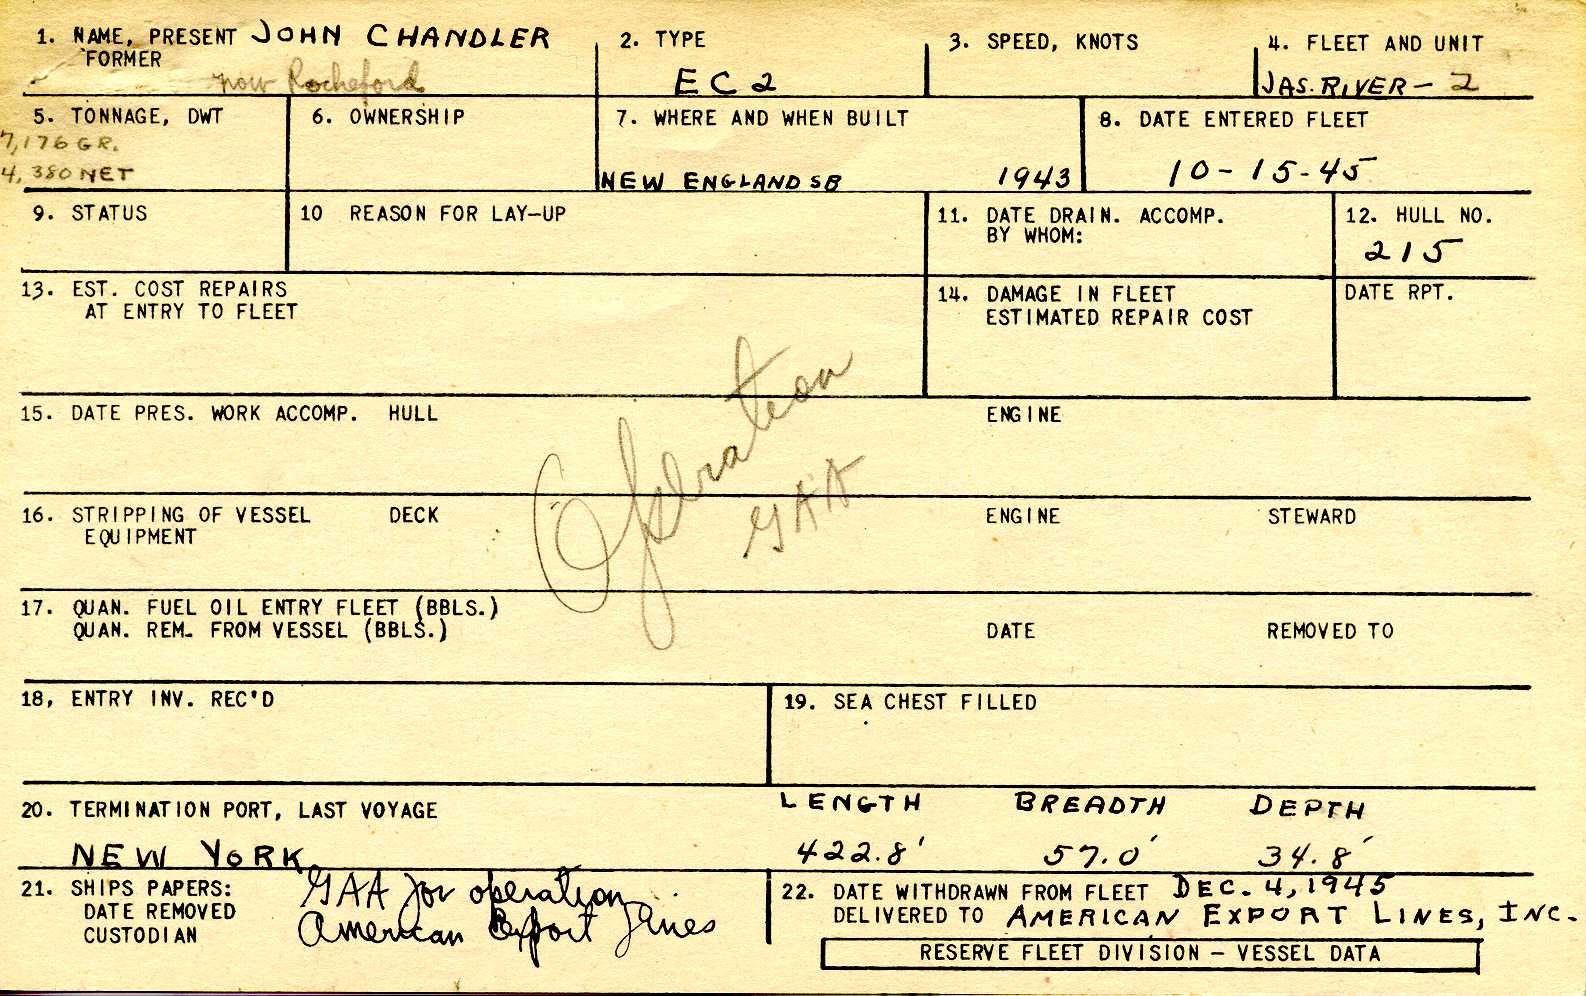 1. NAME, PRESENT JOHN CHANDLER
FORMER
now Rocheford
2. TYPE
EC2
3. SPEED, KNOTS
4. FLEET AND UNIT
JAS. RIVER - 2
5. TONNAGE, DWT
7,176 GR.
4,380 NET
6. OWNERSHIP
7. WHERE AND WHEN BUILT
NEW ENGLAND SB 1943
8. DATE ENTERED FLEET
10-15-45
9. STATUS
10 REASON FOR LAY-UP
11. DATE DRAIN. ACCOMP.
BY WHOM:
12. HULL NO.
215
13. EST. COST REPAIRS
AT ENTRY TO FLEET
14. DAMAGE IN FLEET
ESTIMATED REPAIR COST
DATE RPT.
15. DATE PRES. WORK ACCOMP. HULL ENGINE
Operation
GAA
16. STRIPPING OF VESSEL DECK ENGINE STEWARD
EQUIPMENT
17. QUAN. FUEL OIL ENTRY FLEET (BBLS.)
QUAN. REM. FROM VESSEL (BBLS.) DATE REMOVED TO
18, ENTRY INV. REC'D
19. SEA CHEST FILLED
20. TERMINATION PORT, LAST VOYAGE
NEW YORK
LENGTH BREADTH DEPTH
422.8' 57.0' 34.8'
21. SHIPS PAPERS:
DATE REMOVED
CUSTODIAN
GAA for operation
American Export Lines
22. DATE WITHDRAWN FROM FLEET DEC. 4, 1945
DELIVERED TO AMERICAN EXPORT LINES, INC.
RESERVE FLEET DIVISION - VESSEL DATA